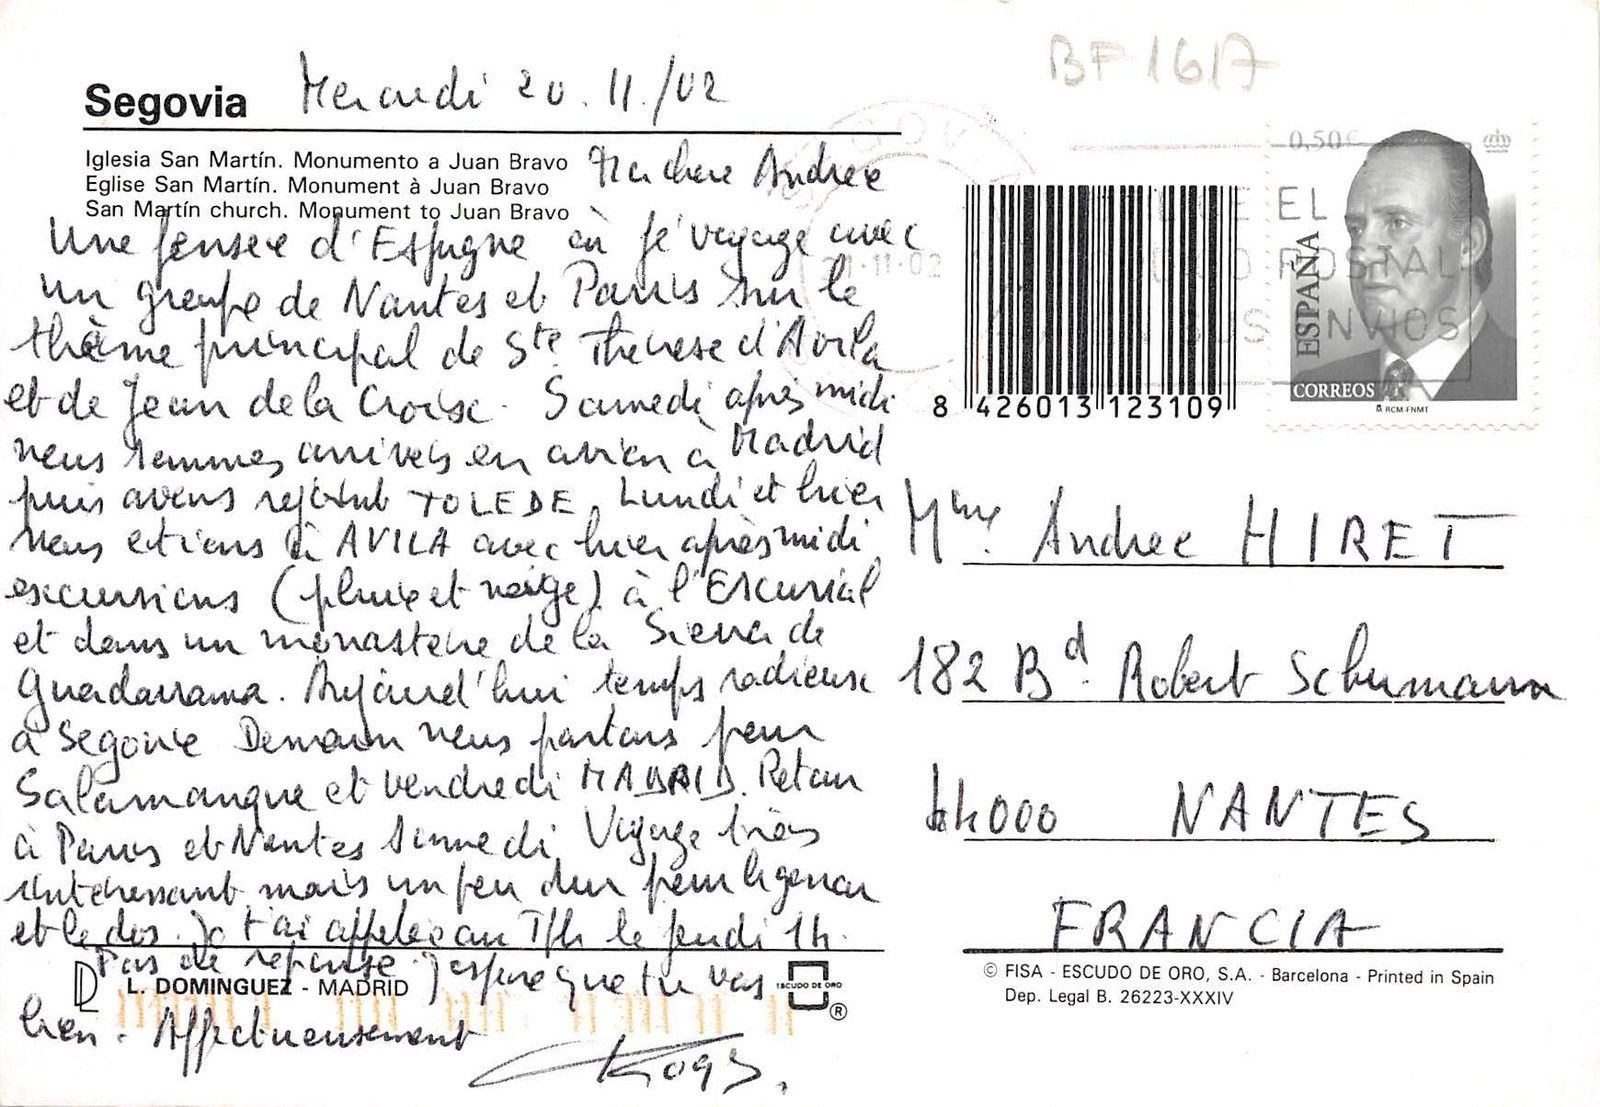 BF 1617
Segovia
Mercredi 20.11/02
Iglesia San Martín. Monumento a Juan Bravo
Eglise San Martín. Monument à Juan Bravo
San Martín church. Monument to Juan Bravo
Ma chere Andree
Une pensée d'Espagne où je voyage avec
un groupe de Nantes et Paris sur le
thème principal de Ste Therese d'Avila
et de Jean de la Croix. Samedi après midi
nous sommes arrivés en avion à Madrid
puis avons rejoint TOLEDE. Lundi et hier
nous etions à AVILA avec hier après midi
excursions (pluie et neige) à l'Escurial
et dans un monastere de la Sierra de
Guadarrama. Aujourd'hui temps radieux
à Segovie Demain nous partons pour
Salamanque et vendredi MADRID. Retour
à Paris et Nantes Samedi Voyage très
interessant mais un peu dur pour le genou
et le dos. Je t'ai appelée au Tph le jeudi 14.
Pas de reponse. J'espere que tu vas
bien. Affectueusement
L. DOMINGUEZ - MADRID
ESCUDO DE ORO
®
0,50€
ESPAÑA
CORREOS
RCM-FNMT
11-02
EL
POSTAL
ENVIOS
8 426013 123109
Mme. Andree HIRET
182 Bd. Robert Schumann
44000 NANTES
FRANCIA
© FISA - ESCUDO DE ORO, S.A. - Barcelona - Printed in Spain
Dep. Legal B. 26223-XXXIV